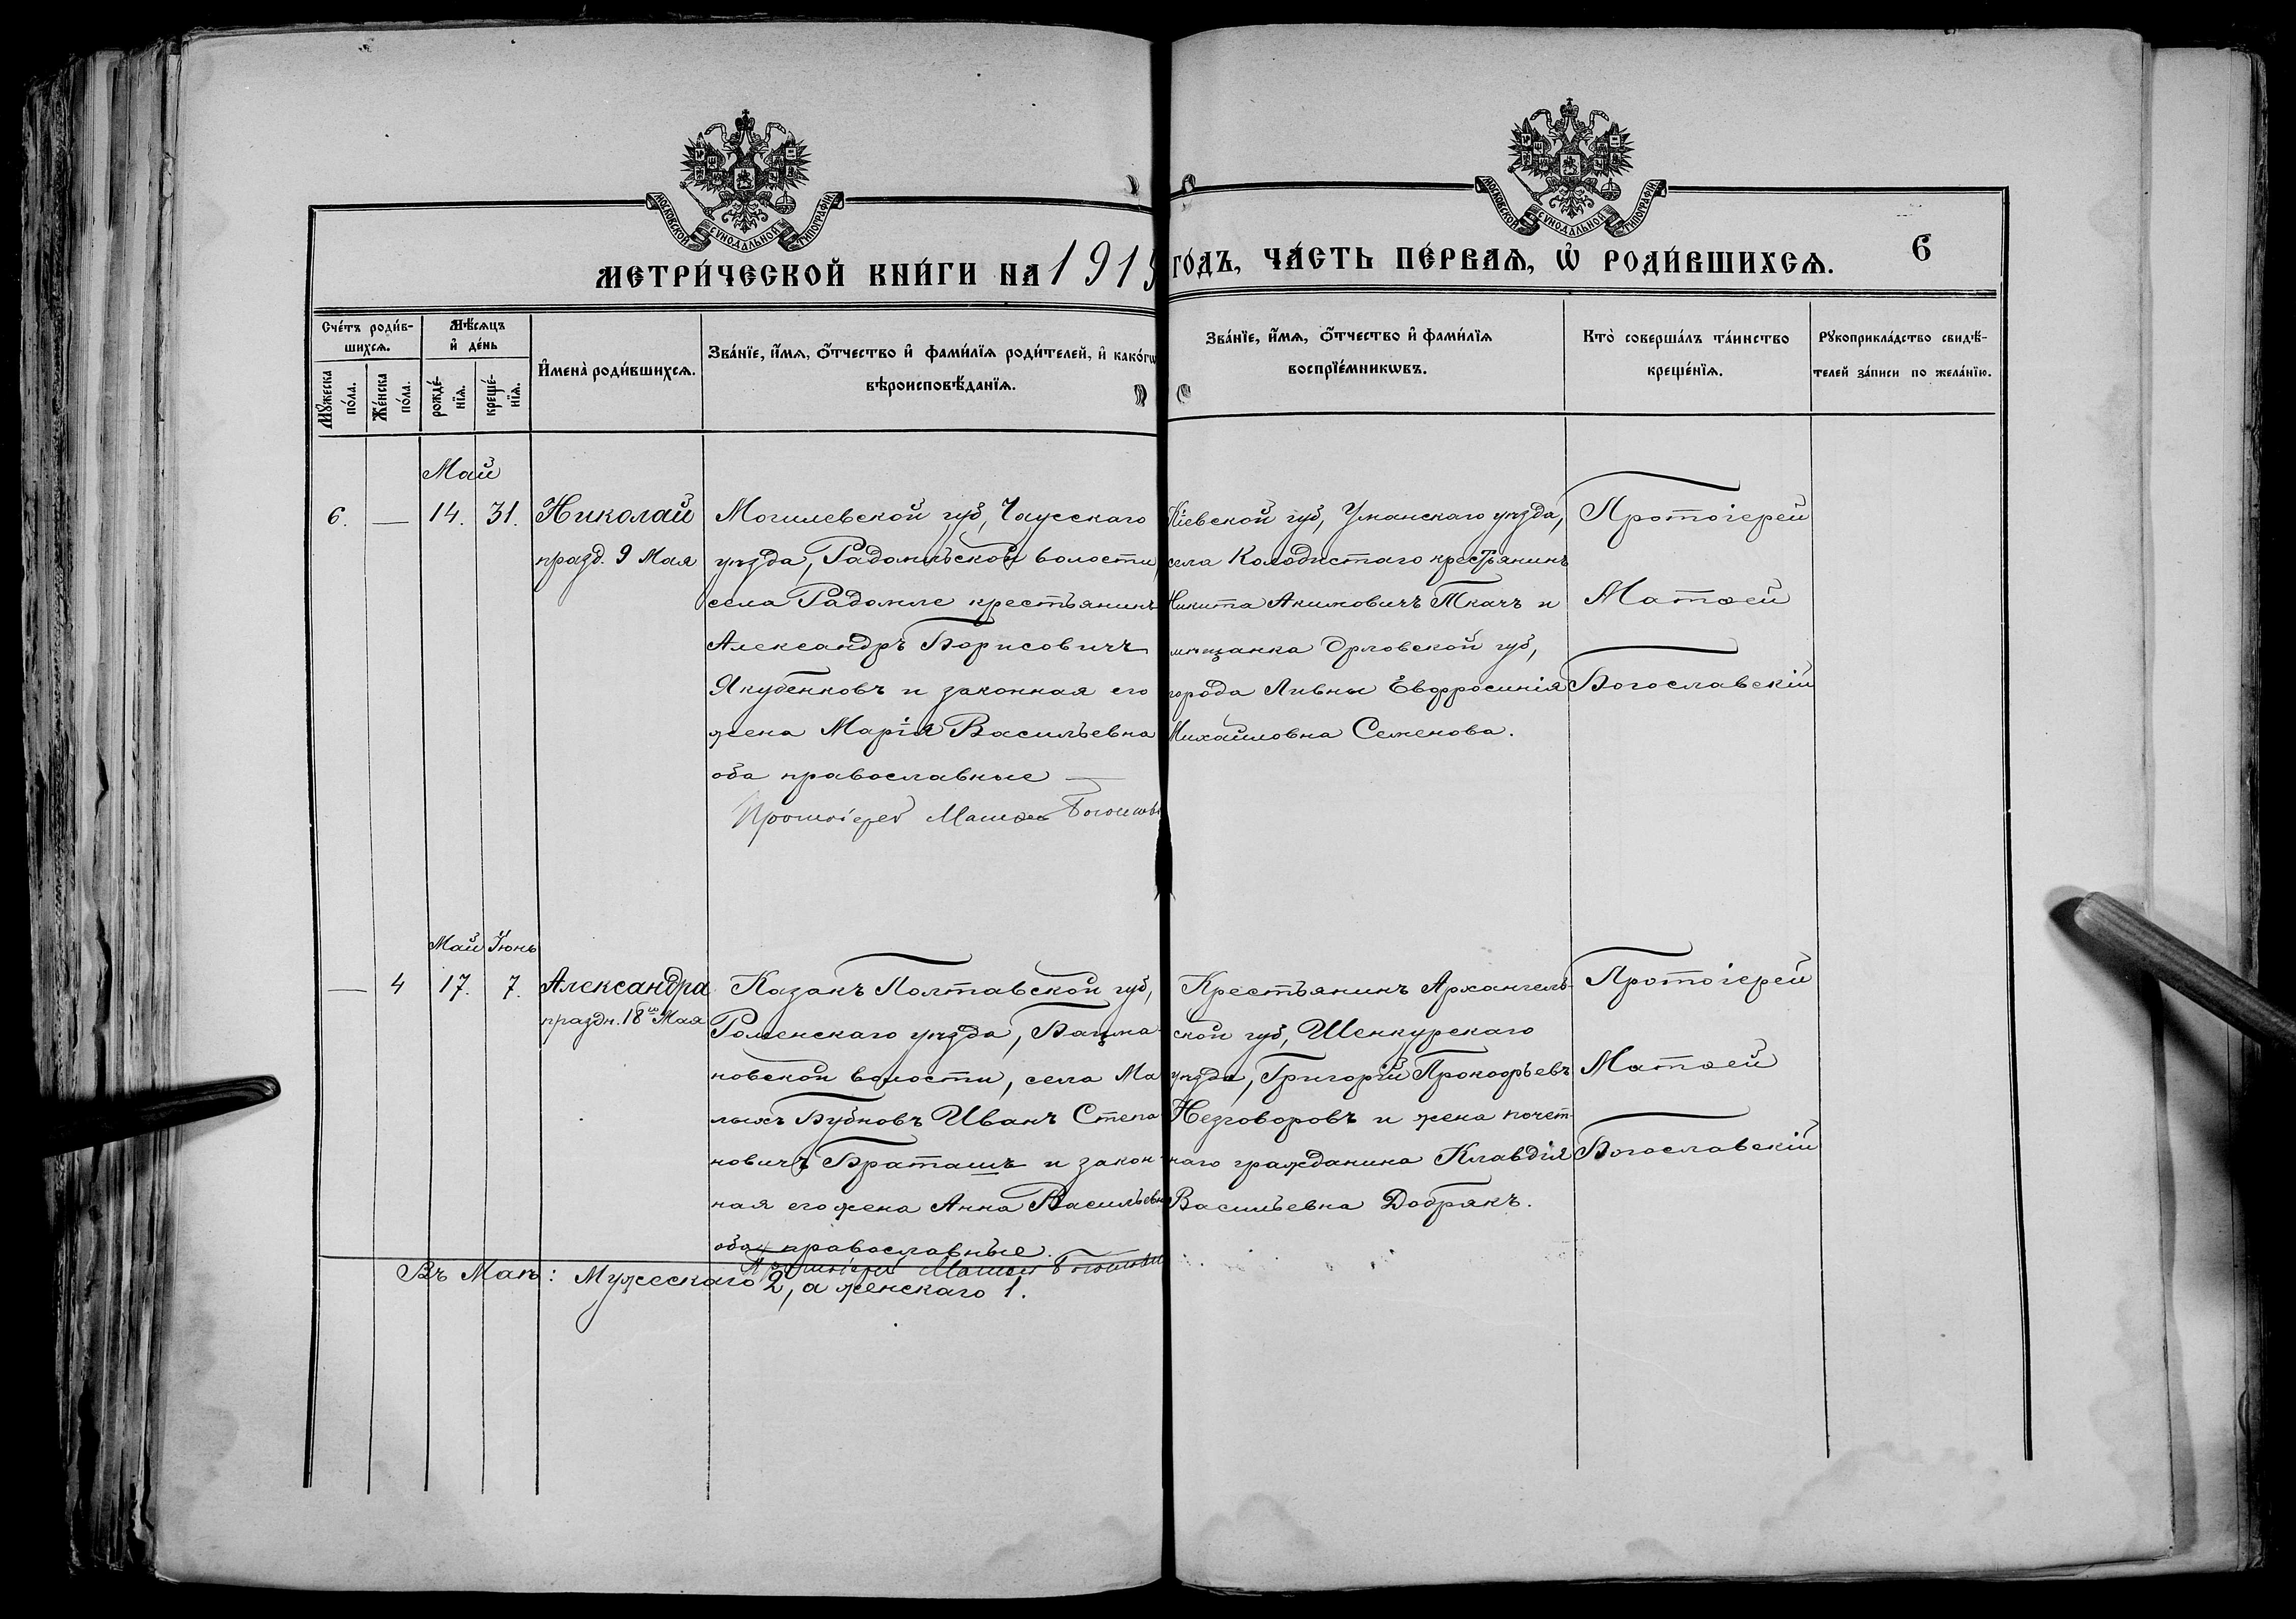 МОСКОВСКОЙ СѴНОДАЛЬНОЙ ТИПОГРАФІИ
МОСКОВСКОЙ СѴНОДАЛЬНОЙ ТИПОГРАФІИ
МЕТРИ́ЧЕСКОЙ КНИ́ГИ НА 1915 ГО́ДЪ, ЧА́СТЬ ПЕ́РВАѦ, Ѡ҆ РОДИ́ВШИХСѦ.
6
Сче́тъ роди́в-
шихсѧ.
Мꙋ́жеска по́ла.
Же́нска по́ла.
Мѣ́сѧцъ и҆ де́нь
рожде́-
нїѧ.
креще́-
нїѧ.
И҆мена̀ роди́вшихсѧ.
Зва́нїе, и҆́мѧ, ѻ҆́тчество и҆ фами́лїѧ роди́телей, и҆ како́гѡ
вѣроисповѣ́данїѧ.
Зва́нїе, и҆́мѧ, ѻ҆́тчество и҆ фами́лїѧ
воспрїе́мникѡвъ.
Кто̀ соверша́лъ та́инство
креще́нїѧ.
Рꙋкоприкла́дство свидѣ́-
телей за́писи по жела́нїю.
Май
6. — 14. 31.
Николай
празд. 9 Мая
Могилевской губ, Чаусскаго
уѣзда, Радомльской волости,
села Радомле крестьянинъ
Александръ Борисовичъ
Якубенковъ и законная его
жена Марія Васильевна
оба православные —
Протоіерей Матѳей
Кіевской губ, Уманскаго уѣзда,
села Колодистаго крестьянинъ
Никита Акимовичъ Ткачъ и
мѣщанка Орловской губ,
города Ливны Евфросинія
Михайловна Семенова.
Протоіерей
Матѳей
Богославскій
Май Іюнь
— 4 17. 7.
Александра
праздн. 18го Мая
Казакъ Полтавской губ,
Роменскаго уѣзда, Бацма-
новской волости, села Ма
лыхъ Бубновъ Иванъ Степа
новичъ Браташъ и закон-
ная его жена Анна Васильевна
оба православные.
Протоіерей Матѳей
Крестьянинъ Архангель-
ской губ, Шенкурскаго
уѣзда, Григорій Прокофьевъ
Незговоровъ и жена почет-
наго гражданина Клавдія
Васильевна Добрякъ.
Протоіерей
Матѳей
Богославскій
Въ Маѣ: Мужескаго 2, а женскаго 1.